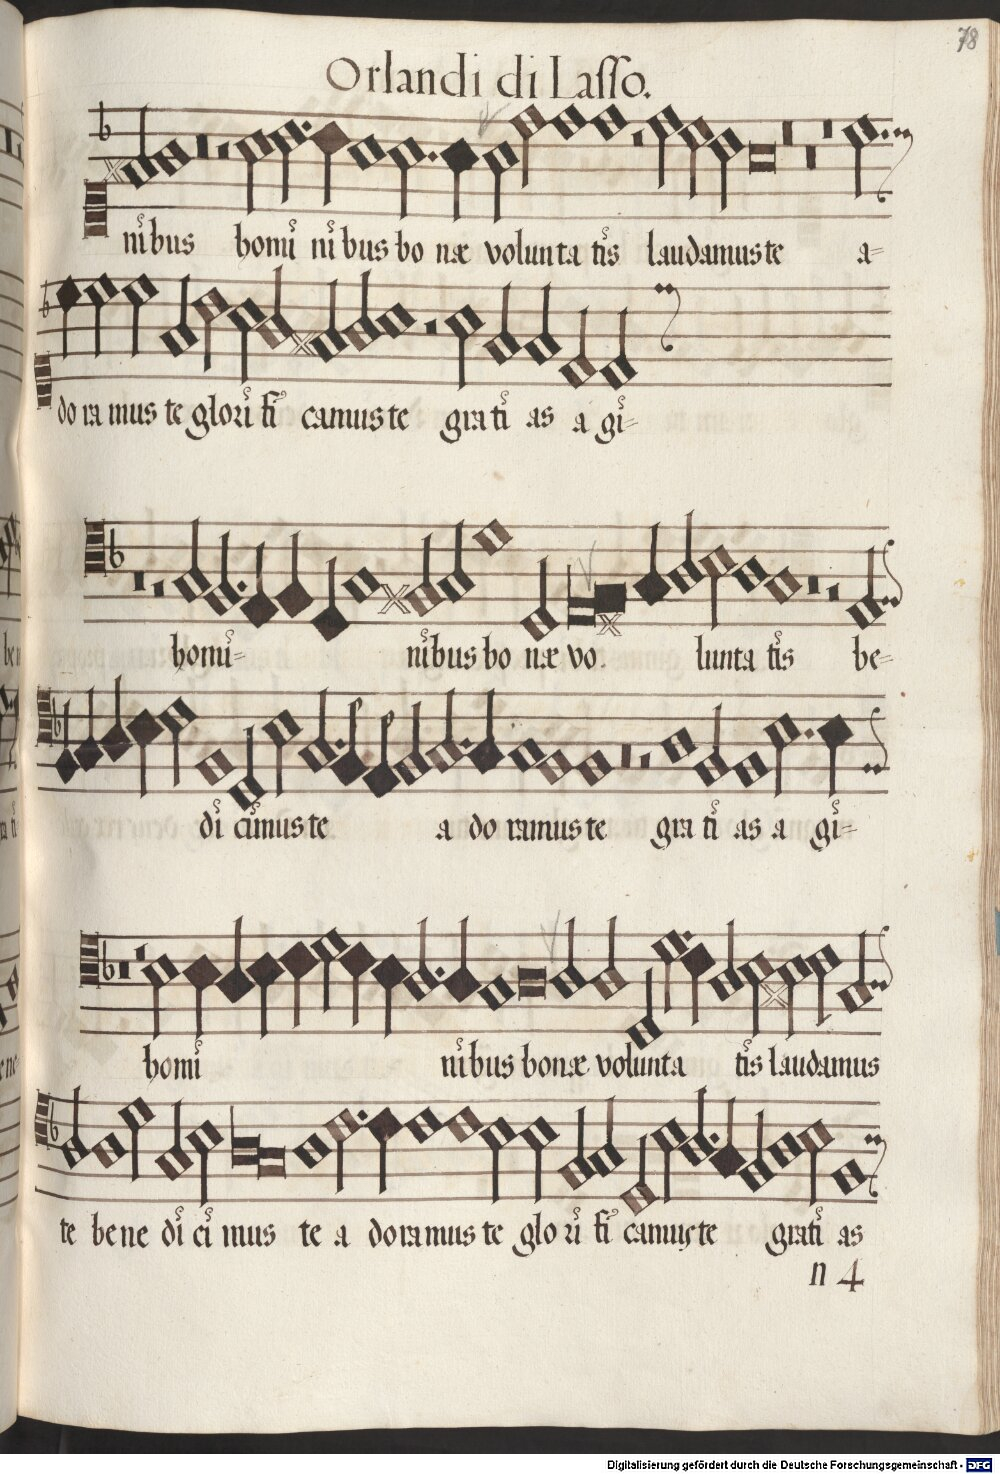 78
Orlandi di Lasso.
nibus homi nibus bo næ volunta tis laudamus te a=
do ra mus te glori fi camus te grati as a gi=
homi= nibus bo næ vo luntatis be=
di cimus te a do ramus te gra ti as a gi=
homi nibus bonæ volunta tis laudamus
te be ne di ci mus te a doramus te glo ri fi camus te grati as
n 4
Digitalisierung gefördert durch die Deutsche Forschungsgemeinschaft - DFG